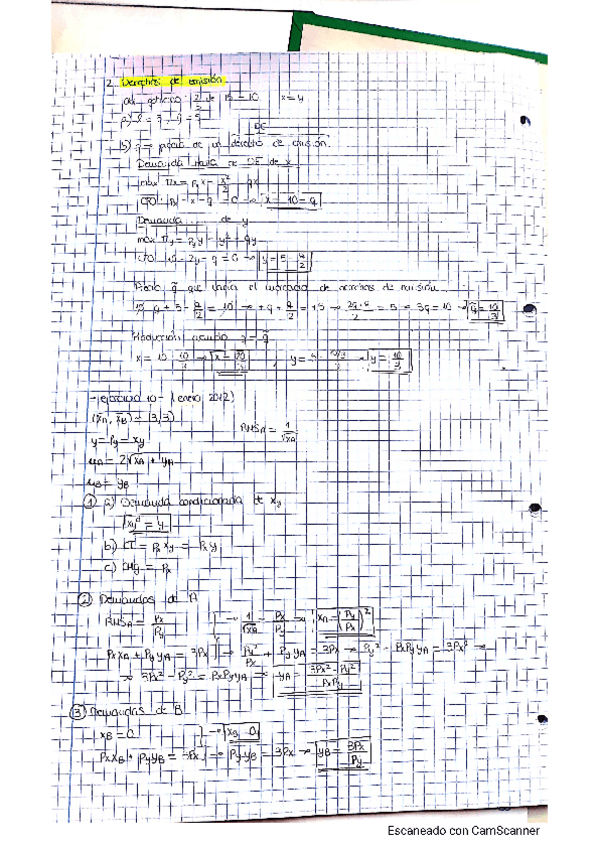 2. Derechos de emisión
x = y
DE
b) q → precio de un derecho de emisión.
Demanda de DE de x
máx πx = Px x - x²/2 - qx
CPO: 10 - x - q = 0 → x = 10 - q
Demanda de y
máx πy = Py y - y² - qy
CPO: 10 - 2y - q = 0 → y = 5 - q/2
Precio q que vacía el mercado de derechos de emisión
= 5 → 3q = 10 → q = 10/3
Producción cuando q = q
x = 10 - 10/3 → x = , y = 5 - → y = 10/3
- ejercicio 10 - (enero 2012)
= (3,3)
RMSA = 1/√xA
y = Py = xy
uA = 2√xA + yA
uB = yB
① a) Demanda condicionada de xy
xyd = y
b) CT = Px xy = Px y
c) CMg = Px
② Demandas de A
RMSA = Px/Py → 1/√xA = Px/Py → xA = (Py/Px)²
PxxA + PyyA = 3Px → Py²/Px + PyyA = 3Px → Py² + PxPyyA = 3Px² →
→ 3Px² - Py² = PxPyyA → yA = 3Px² - Py²/PxPy
③ Demandas de B
xB = 0 → xB = 0
PxxB + PyyB = 3Px → PyyB = 3Px → yB = 3Px/Py
Escaneado con CamScanner